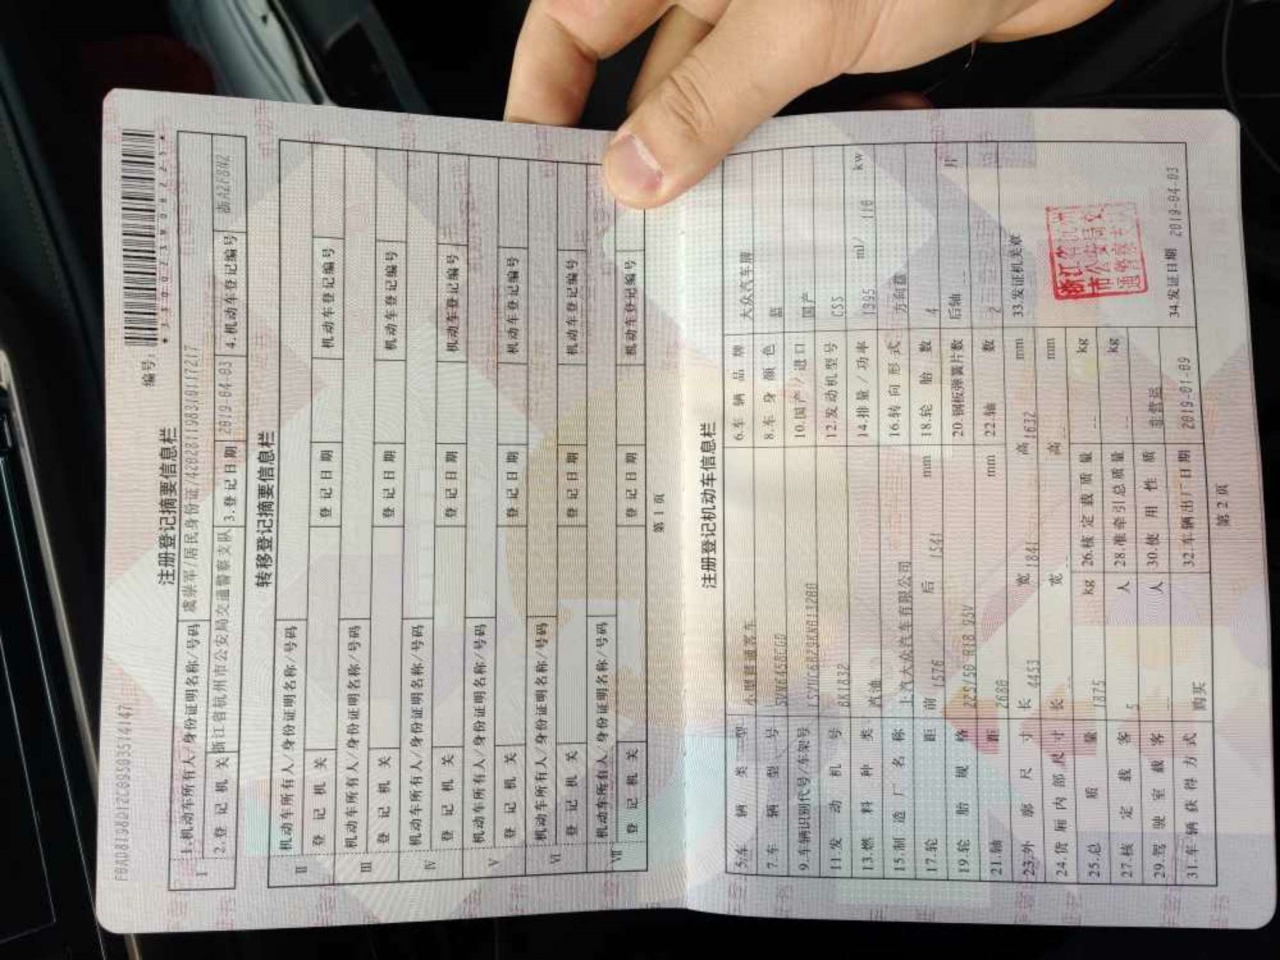 编号:
注册登记摘要信息栏
I 1.机动车所有人/身份证明名称/号码 虞崇军/居民身份证/
2.登记机关 浙江省杭州市公安局交通警察支队 3.登记日期 2019-04-03 4.机动车登记编号 浙A2F8W2
转移登记摘要信息栏
II 机动车所有人/身份证明名称/号码
登记机关 登记日期 机动车登记编号
III 机动车所有人/身份证明名称/号码
登记机关 登记日期 机动车登记编号
IV 机动车所有人/身份证明名称/号码
登记机关 登记日期 机动车登记编号
V 机动车所有人/身份证明名称/号码
登记机关 登记日期 机动车登记编号
VI 机动车所有人/身份证明名称/号码
登记机关 登记日期 机动车登记编号
VII 机动车所有人/身份证明名称/号码
登记机关 登记日期 机动车登记编号
第 1 页
注册登记机动车信息栏
5.车辆类型 小型普通客车 6.车辆品牌 大众汽车牌
7.车辆型号 8.车身颜色 蓝
9.车辆识别代号/车架号 10.国产/进口 国产
11.发动机号 12.发动机型号 CSS
13.燃料种类 汽油 14.排量/功率 1395 ml/ 110 kw
15.制造厂名称 上汽大众汽车有限公司 16.转向形式 方向盘
17.轮距 前 1576 后 1541 mm 18.轮胎数 4
19.轮胎规格 225/50 R18 95V 20.钢板弹簧片数 后轴 -- 片
21.轴距 2680 mm 22.轴数 2
23.外廓尺寸 长 4453 宽 1841 高 1632 mm 33.发证机关章
24.货厢内部尺寸 长 -- 宽 -- 高 -- mm
25.总质量 1875 kg 26.核定载质量 -- kg
27.核定载客 5 人 28.准牵引总质量 -- kg
29.驾驶室载客 -- 人 30.使用性质 非营运
31.车辆获得方式 购买 32.车辆出厂日期 2019-01-09 34.发证日期 2019-04-03
第 2 页